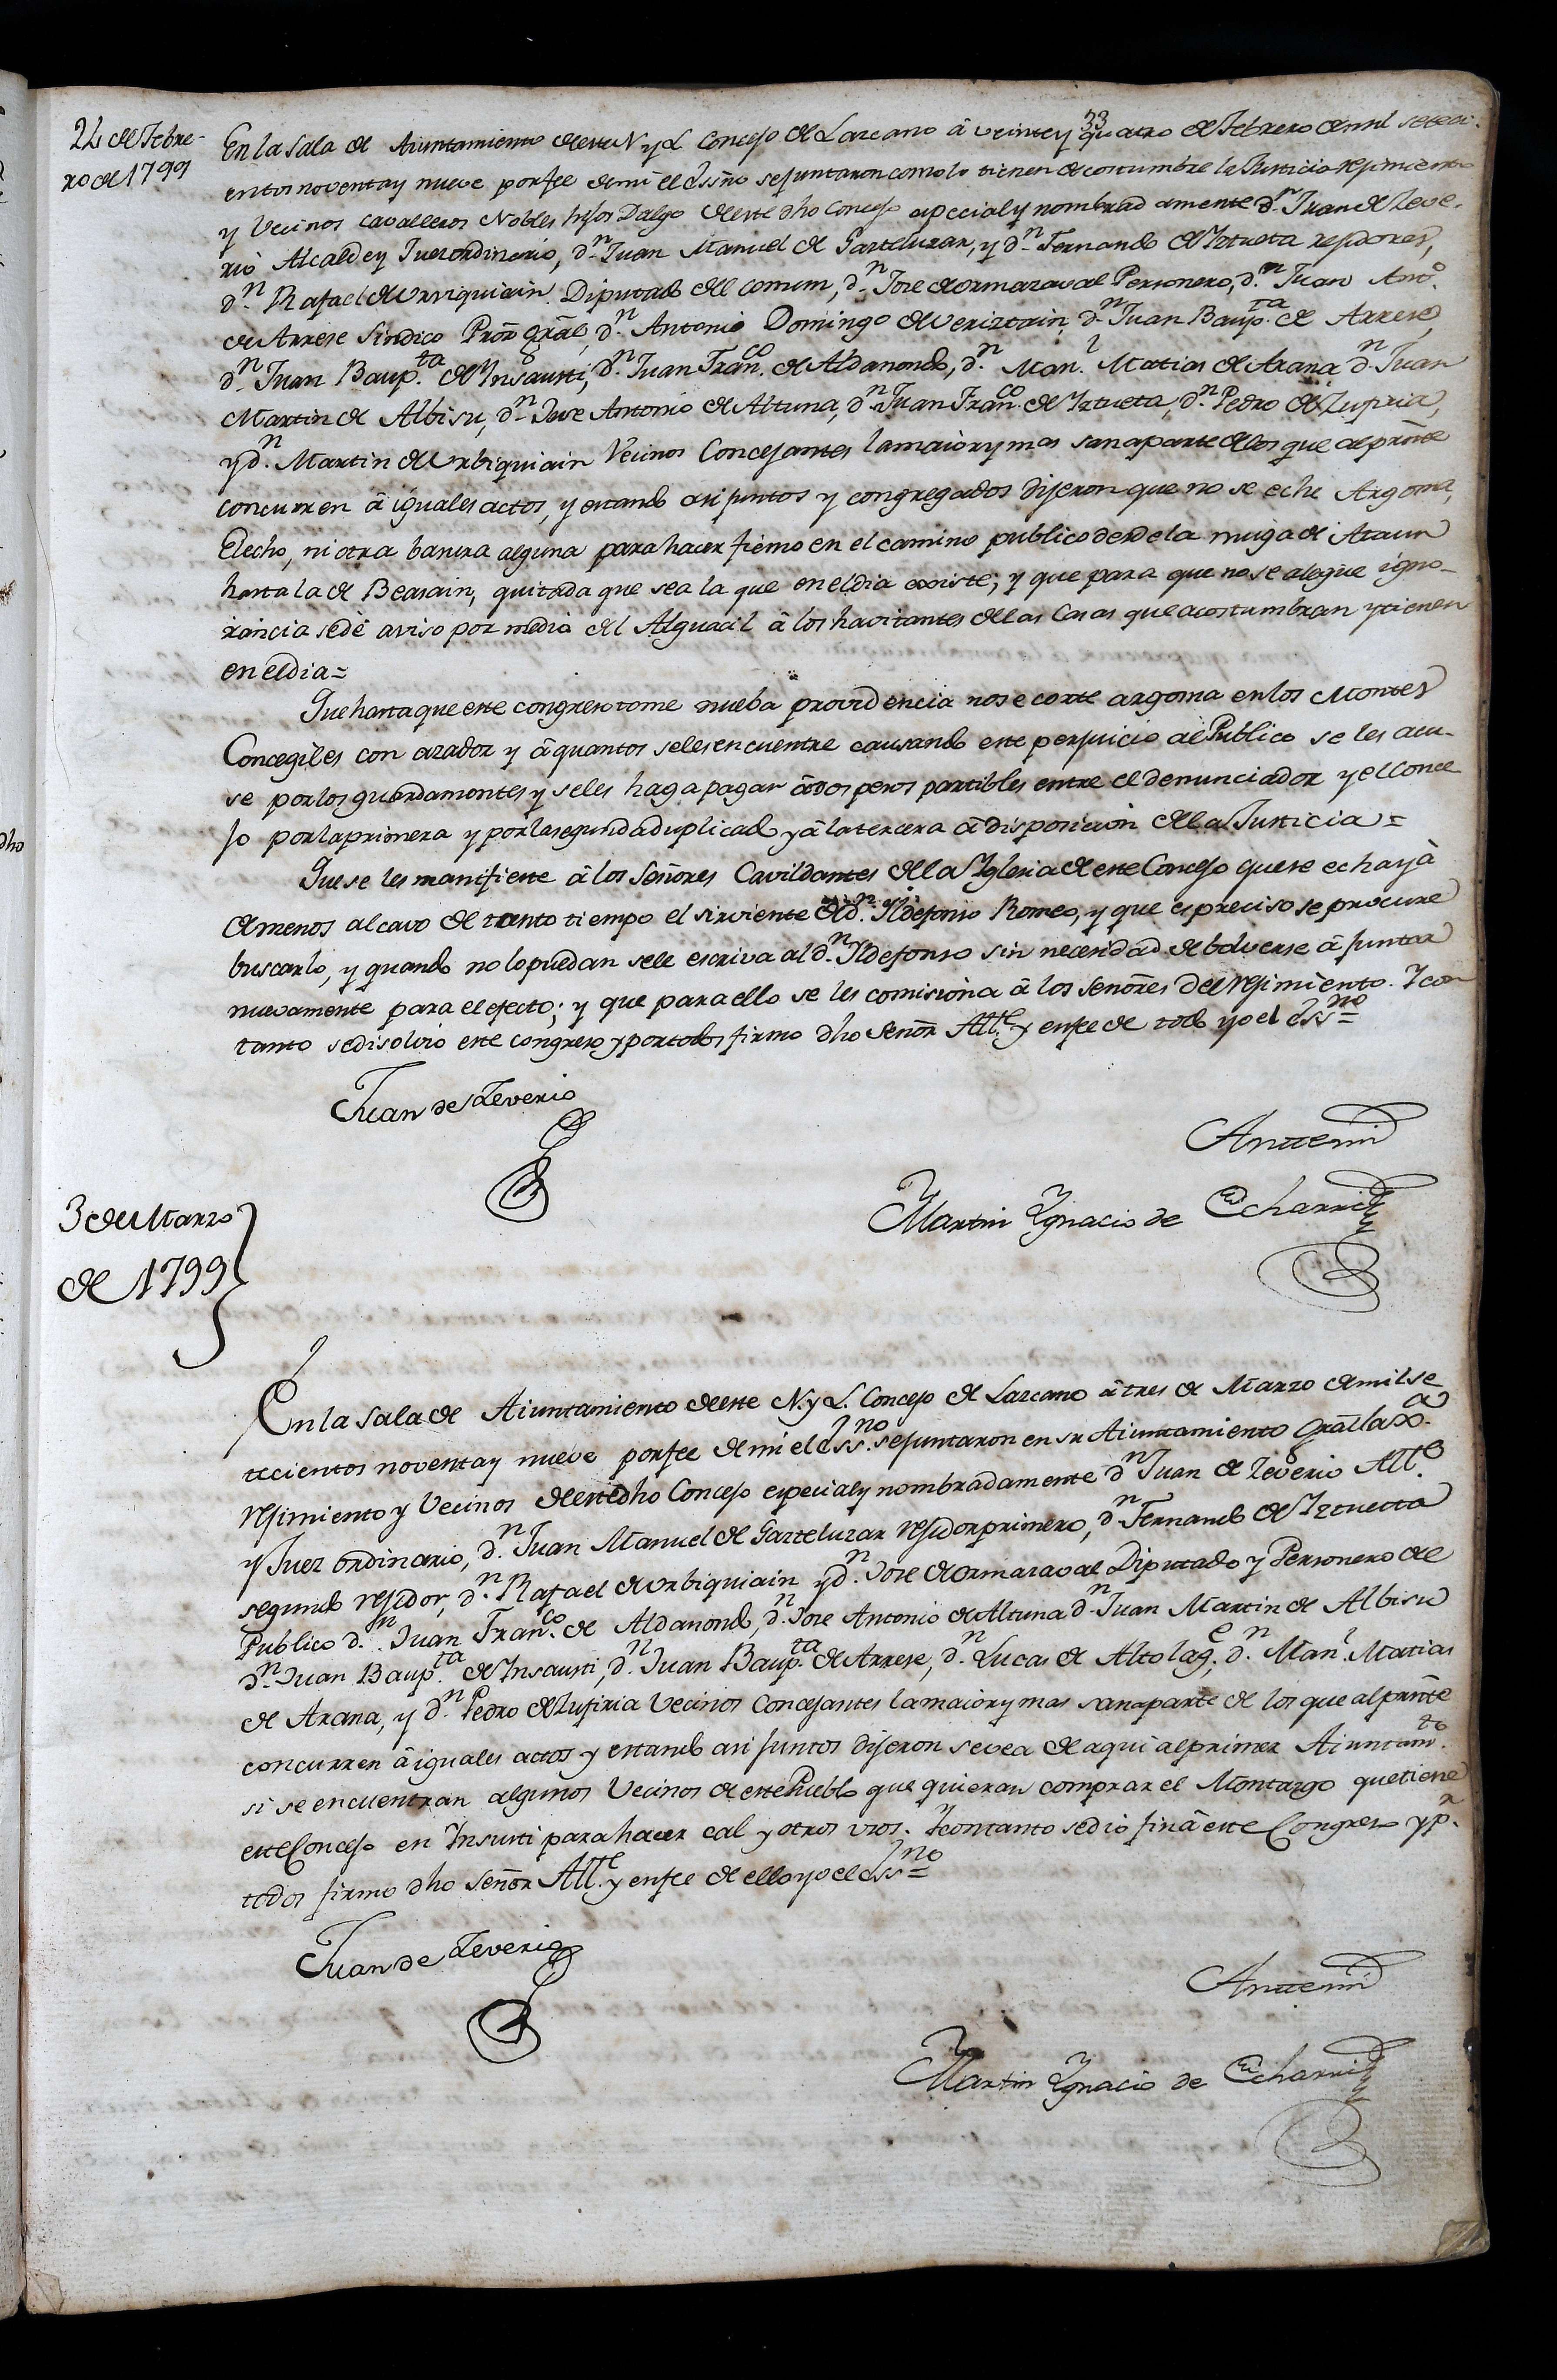 33
24 de Febre-
ro de 1799
En la Sala de Aiuntamiento de este N. y L. Concejo de Lazcano â veinte y quatro de Febrero de mil seteci-
entos noventa y nueve por fee de mi el Essno se juntaron como lo tienen de costumbre la Justicia rejimiento
y Vecinos cavalleros Nobles hijos Dalgo de este dho Concejo especial y nombrad amente dn. Juan de Zeve-
rio Alcalde y Juez ordinario, dn. Juan Manuel de Garteluzar, y dn. Fernando de Yztueta rejidores,
dn. Rafael de Urviquiain Diputado del comun, dn. Jose de Ormazaval Personero, dn. Juan Anto.
de Arrese Sindico Pror Gral, dn. Antonio Domingo de Veriztain, dn. Juan Baupta. de Arrese,
dn. Juan Baupta. de Ynsausti, dn. Juan Franco. de Aldanondo, dn. Manl. Matias de Arana dn. Juan
Martin de Albisu, dn. Jose Antonio de Altuna, dn. Juan Franco. de Yztueta, dn. Pedro de Zufiria,
y dn. Martin de Urbiquiain Vecinos Concejantes la maior y mas sana parte de los que al prnte
concurren â iguales actos, y estando asi juntos y congregados dijeron que no se eche Argoma,
Elecho, ni otra basura alguna para hacer fiemo en el camino publico desde la muga de Ataun
hasta la de Beasain, quitada que sea la que en el dia existe; y que para que no se alegue igno-
rancia se dè aviso por medio del Alguacil â los havitantes de las Casas que acostumbran y tienen
en el dia =
Que hasta que este congreso tome nueba providencia no se corte argoma en los Montes
Concegiles con azador y â quantos se les encuentre causando este perjuicio al Publico se les acu-
se por los guardamontes y se les haga pagar â dos pesos partibles entre el denunciador y el Conce
jo por la primera y por la segunda duplicado y â la tercera â disposicion de la Justicia =
Que se les manifieste â los Señores Cavildantes de la Yglesia de este Concejo que se echa yà
de menos al cavo de tanto tiempo el sirviente de dn. Yldefonso Romeo, y que es preciso se procure
buscarlo, y quando no lo puedan se le escriva al dn. Yldefonso sin necesidad de bolverse â juntar
nuevamente para el efecto; y que para ello se les comisiona â los Señores del rejimiento. Y con
tanto se disolvio este congreso y por todos firmo dho Señor Alle. y en fee de todo yo el Essno =
Juan de Zeverio
Antemi
Martin Ygnacio de Echarri
3 de Marzo
de 1799
En la Sala de Aiuntamiento de este N. y L. Concejo de Lazcano â tres de Marzo de mil se
tecientos noventa y nueve por fee de mi el Essno. se juntaron en su Aiuntamiento Gral la Xa.
rejimiento y Vecinos de este dho Concejo especial y nombradamente dn Juan de Zeverio Alle.
y Juez ordinario, dn. Juan Manuel de Garteluzar rejidor primero, dn. Fernando de Yztueta
segundo rejidor, dn. Rafael de Urbiquiain y dn. Jose de Ormazaval Diputado y Personero del
Publico dn. Juan Franco. de Aldanondo, dn. Jose Antonio de Altuna dn. Juan Martin de Albisu
dn. Juan Baupta. de Ynsausti, dn. Juan Baupta. de Arrese, dn. Lucas de Altolage. dn. Manl. Matias
de Arana, y dn. Pedro de Zufiria Vecinos Concejantes la maior y mas sana parte de los que al prnte
concurren â iguales actos y estando asi juntos dijeron se vea de aqui al primer Aiuntamto.
si se encuentran algunos Vecinos de este Pueblo que quieran comprar el Montazgo que tiene
este Concejo en Ynsusti para hacer cal y otros usos. Y con tanto se dio fin â este Congreso y pr.
todos firmo dho Señor Alle. y en fee de ello yo el Essno =
Juan de Zeverio
Antemi
Martin Ygnacio de Echarri